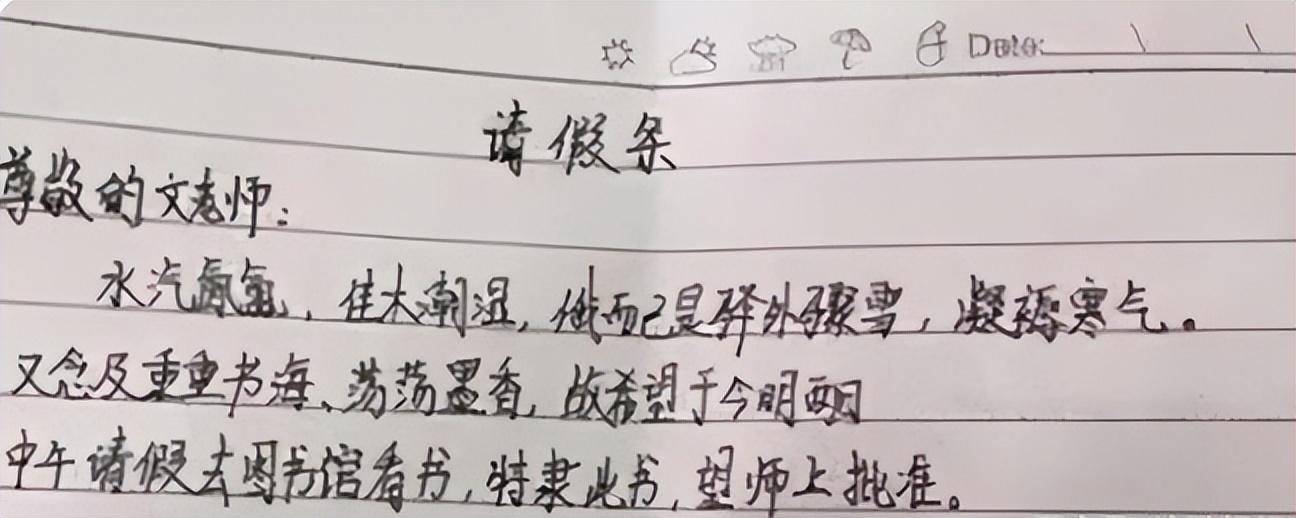 Date:
请假条
尊敬的文老师:
水汽氤氲,佳木潮湿,俄而已是驿外骤雪,凝寒气。
又念及重重书海、荡荡墨香,故希望于今明两日
中午请假去图书馆看书,特隶此书,望师上批准。